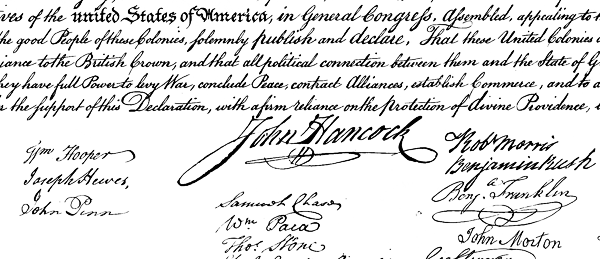 ives of the united States of America, in General Congress, Assembled, appealing to t
the good People of these Colonies, solemnly publish and declare, That these United Colonies a
iance to the British Crown, and that all political connection between them and the State of G
they have full Power to levy War, conclude Peace, contract Alliances, establish Commerce, and to a
r the support of this Declaration, with a firm reliance on the protection of divine Providence,
John Hancock
Wm Hooper
Joseph Hewes,
John Penn
Samuel Chase
Wm. Paca
Thos. Stone
Robt Morris
Benjamin Rush
Benja. Franklin
John Morton